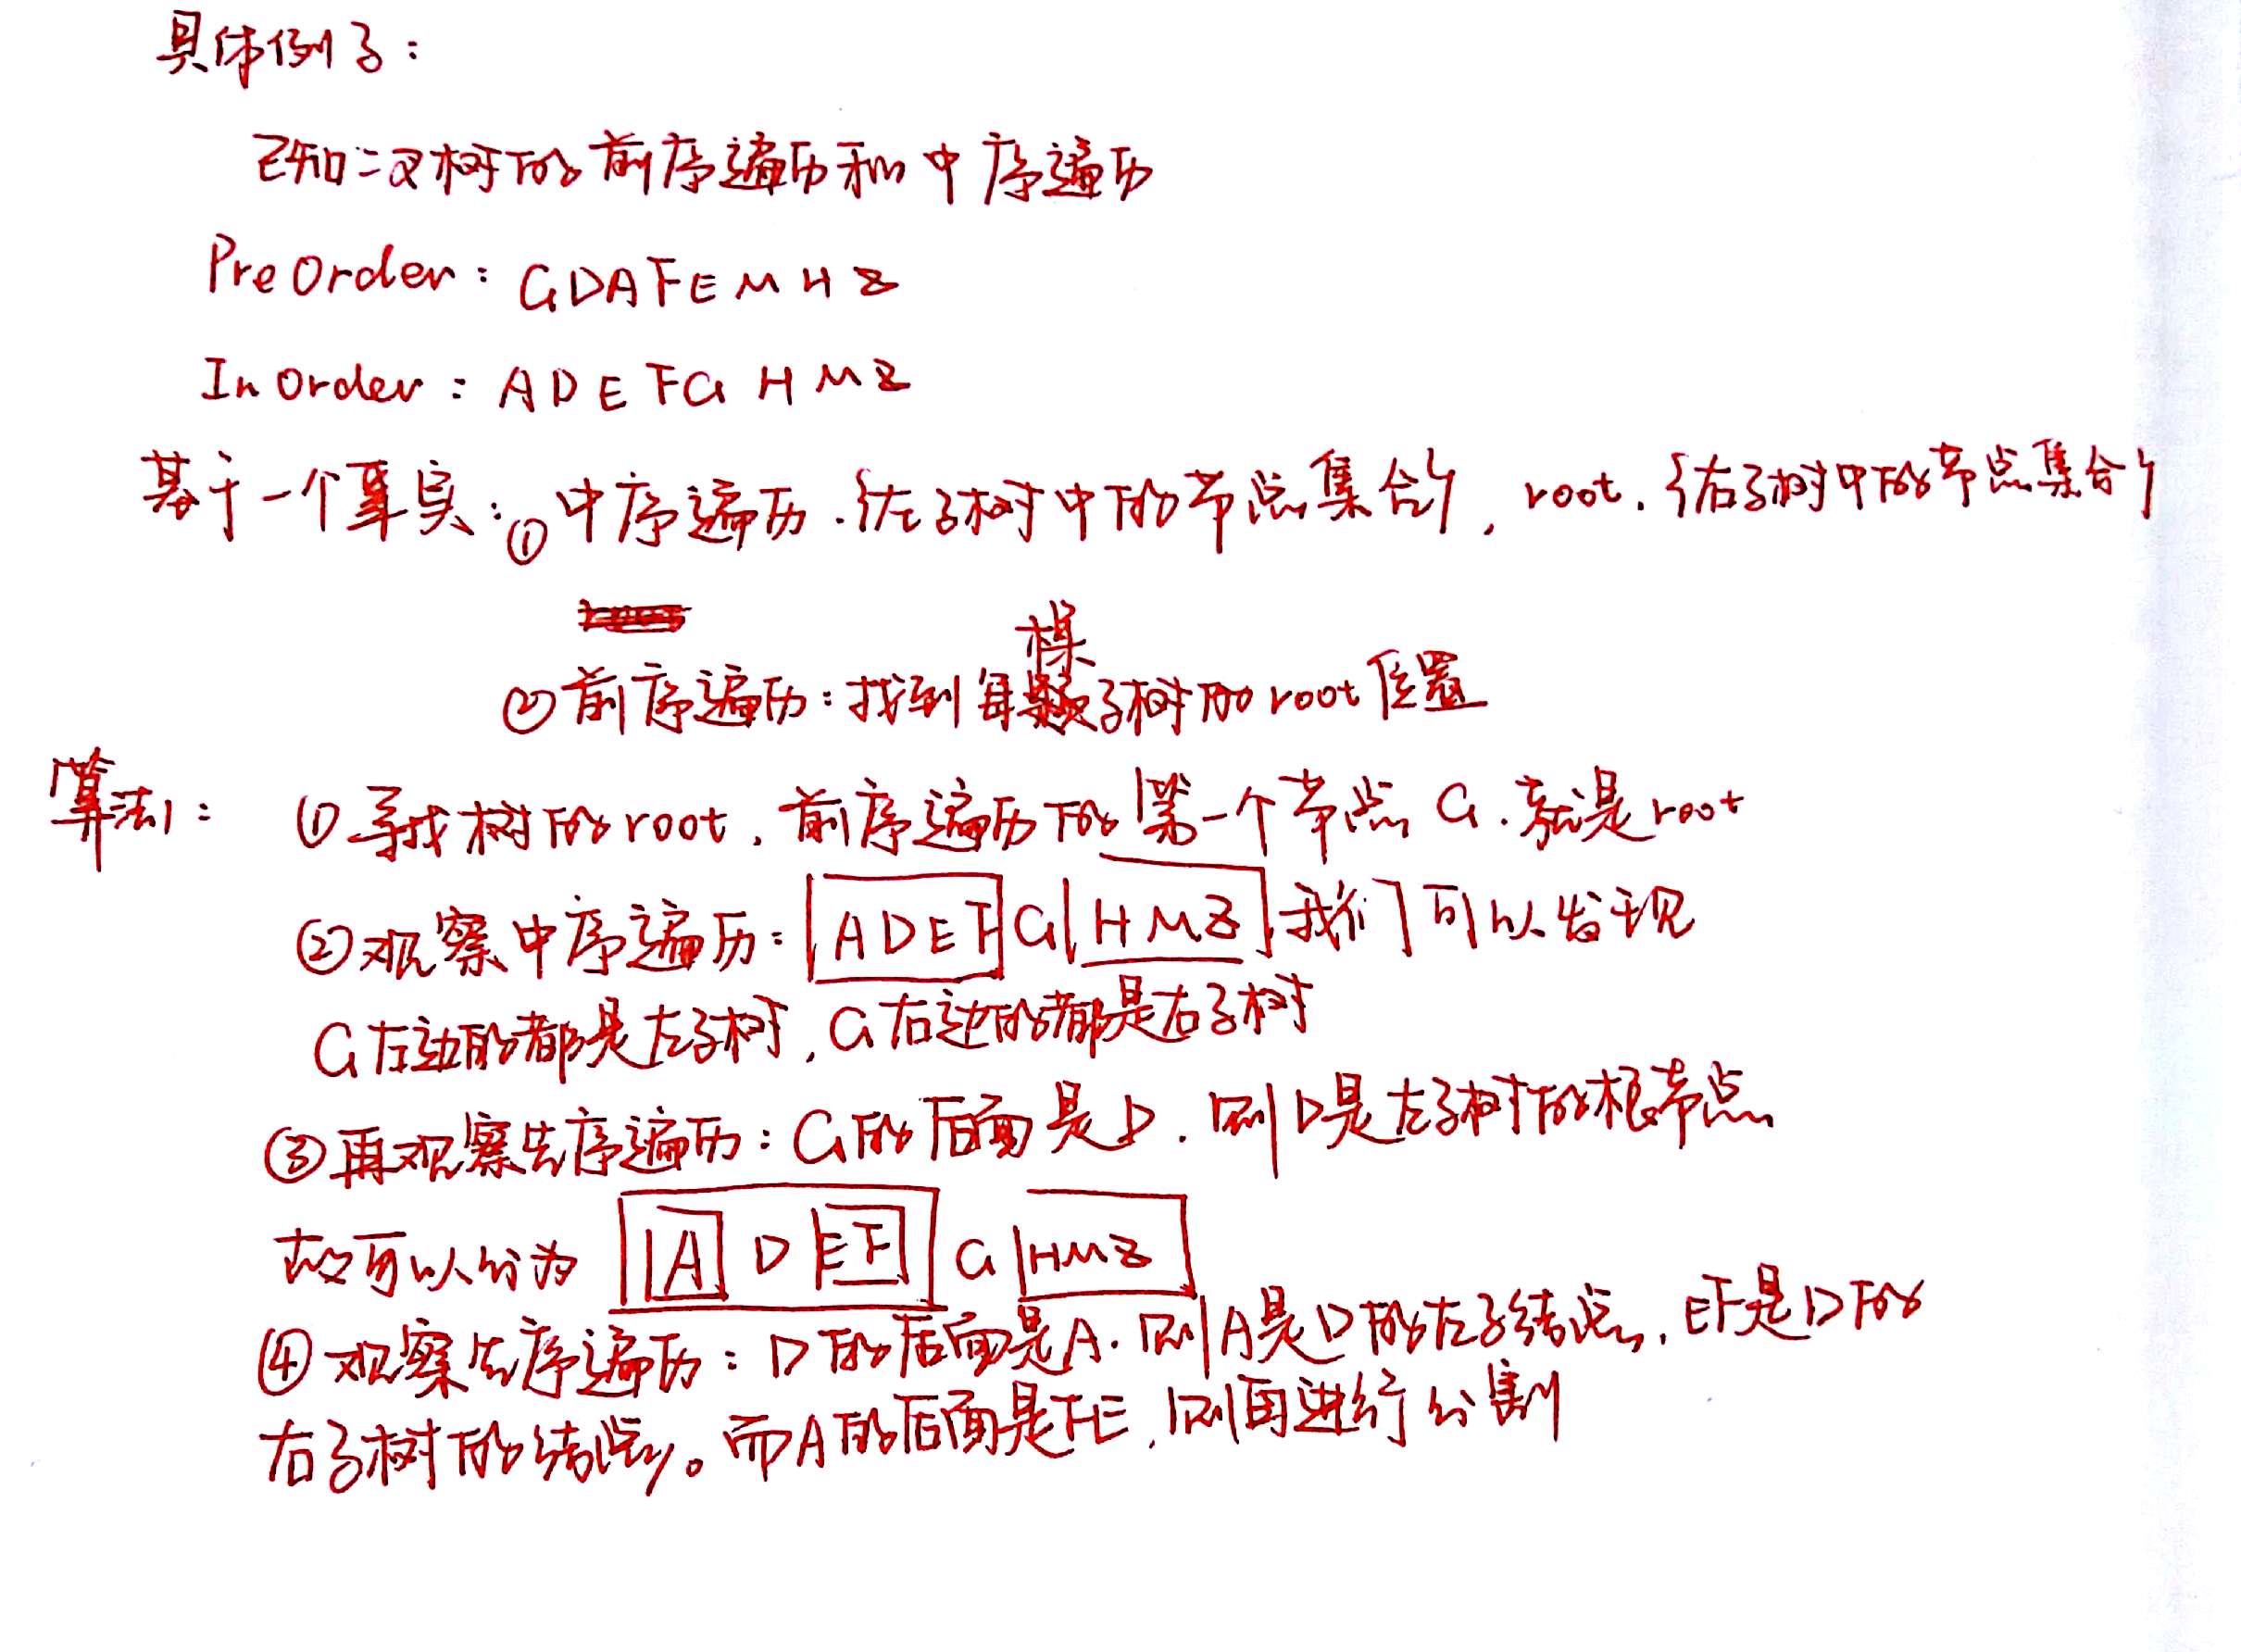 具体例子：
已知二叉树的前序遍历和中序遍历
PreOrder：GDAFEMHZ
InOrder：ADEFGHMZ
基于一个事实：①中序遍历.{左子树中的节点集合}，root.{右子树中的节点集合}
棵
②前序遍历：找到每子树的root位置
算法：①寻找树的root，前序遍历的第一个节点G.就是root
②观察中序遍历：ADEF G HMZ 我们可以发现
G左边的都是左子树，G右边的都是右子树
③再观察先序遍历：G的后面是D.则D是左子树的根节点
故可以分为 A D EF G HMZ
④观察先序遍历：D的后面是A.则A是D的左子结点，EF是D的
右子树的结点。而A的后面是FE，则再进行分割